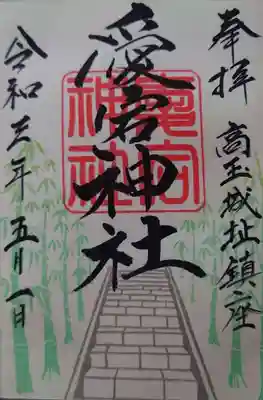 奉拝
高玉城址鎮座
愛宕神社
愛宕神社
令和三年五月一日